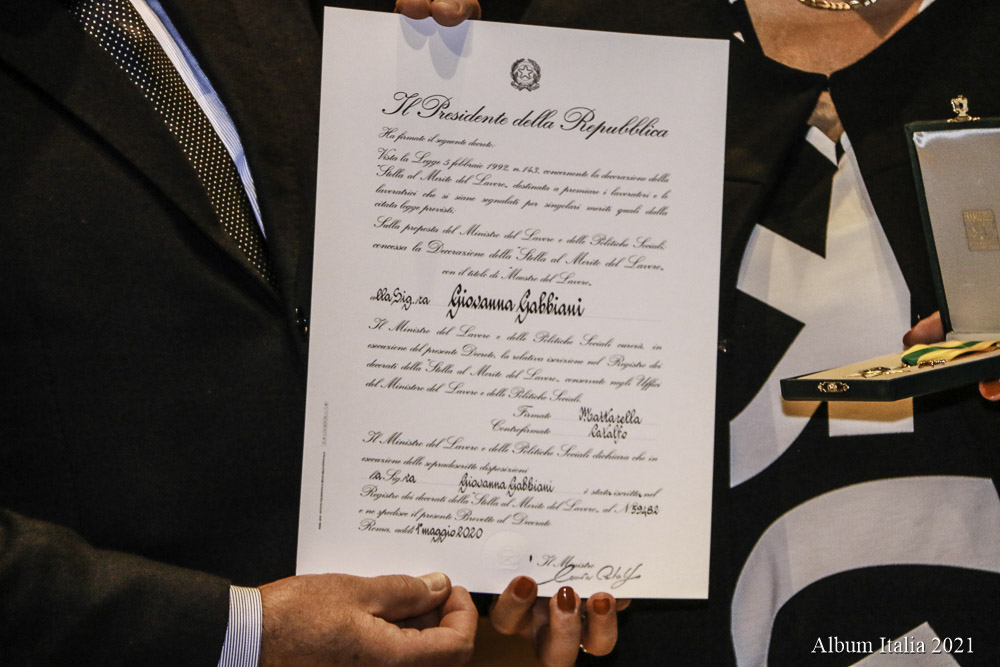 Il Presidente della Repubblica
Ha firmato il seguente decreto:
Vista la Legge 5 febbraio 1992, n. 143, concernente la decorazione della
"Stella al Merito del Lavoro", destinata a premiare i lavoratori e le
lavoratrici che si siano segnalati per singolari meriti quali dalla
citata legge previsti;
Sulla proposta del Ministro del Lavoro e delle Politiche Sociali,
concessa la Decorazione della "Stella al Merito del Lavoro",
con il titolo di "Maestro del Lavoro",
alla Sig.ra Giovanna Gabbiani
Il Ministro del Lavoro e delle Politiche Sociali curerà, in
esecuzione del presente Decreto, la relativa iscrizione nel Registro dei
decorati della "Stella al Merito del Lavoro", conservato negli Uffici
del Ministero del Lavoro e delle Politiche Sociali.
Firmato Mattarella
Controfirmato Catalfo
Il Ministro del Lavoro e delle Politiche Sociali dichiara che in
esecuzione delle sopradescritte disposizioni
la Sig.ra Giovanna Gabbiani è stata iscritta nel
Registro dei decorati della "Stella al Merito del Lavoro", al N° 59482
e ne spedisce il presente Brevetto al Decorato
Roma, addì 1° maggio 2020
Il Ministro
Album Italia 2021